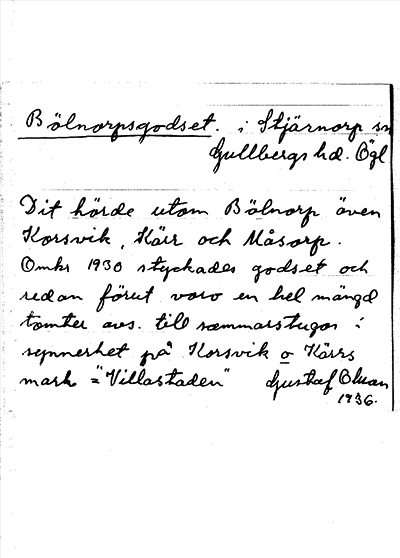 Bölnorpsgodset. i Stjärnorp sn
Gullbergs hd. Ögl
Dit hörde utom Bölnorp även
Korsvik, Kärr och Måsorp.
Omkr 1930 styckades godset och
redan förut voro en hel mängd
tomter avs. till sommarstugor i
synnerhet på Korsvik o Kärrs
mark = "Villastaden" Gustaf Olsson
1936.